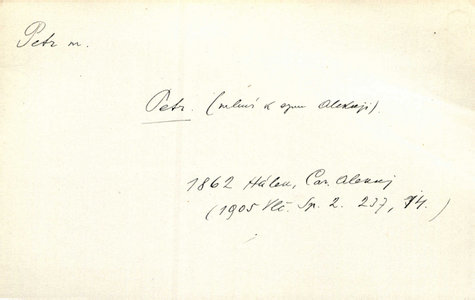 Petr m.
Petr. (mluví k synu Aleksji).
1862 Hálek, Car. Aleksej
(1905 Vlč. Sp. 2. 237, 14.)